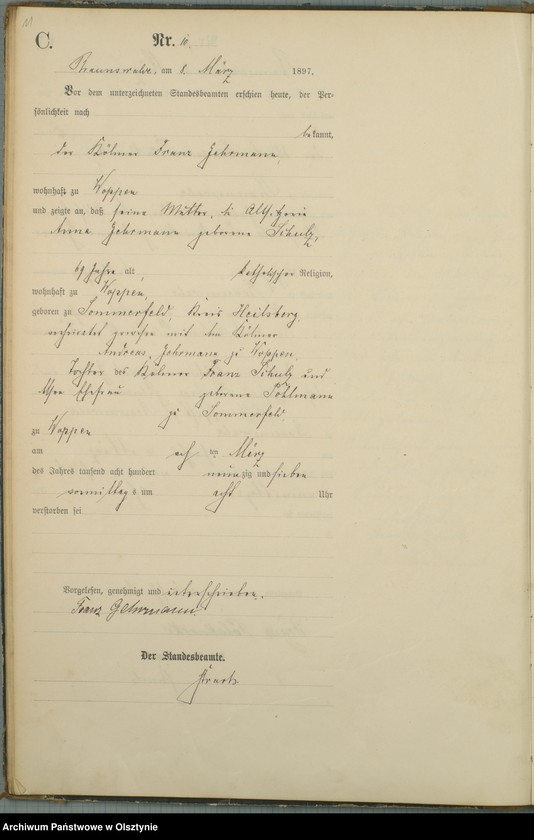 11
C.
Nr. 10.
Braunswalde, am 8. März 1897.
Vor dem unterzeichneten Standesbeamten erschien heute, der Per-
sönlichkeit nach
bekannt,
der Kölmer Franz Gehrmann,
wohnhaft zu Woppen
und zeigte an, daß seine Mutter, die Altsitzerin
Anna Gehrmann geborene Schulz,
69 Jahre alt, katholischer Religion,
wohnhaft zu Woppen,
geboren zu Sommerfeld, Kreis Heilsberg,
verheiratet gewesen mit dem Kölmer
Andreas Gehrmann zu Woppen,
Tochter des Kölmer Franz Schulz und
dessen Ehefrau geborene
zu Sommerfeld
zu Woppen
am acht ten März
des Jahres tausend acht hundert neunzig und sieben
vormittag s um acht Uhr
verstorben sei
Vorgelesen, genehmigt und unterschrieben.
Franz Gehrmann.
Der Standesbeamte.
Archiwum Państwowe w Olsztynie